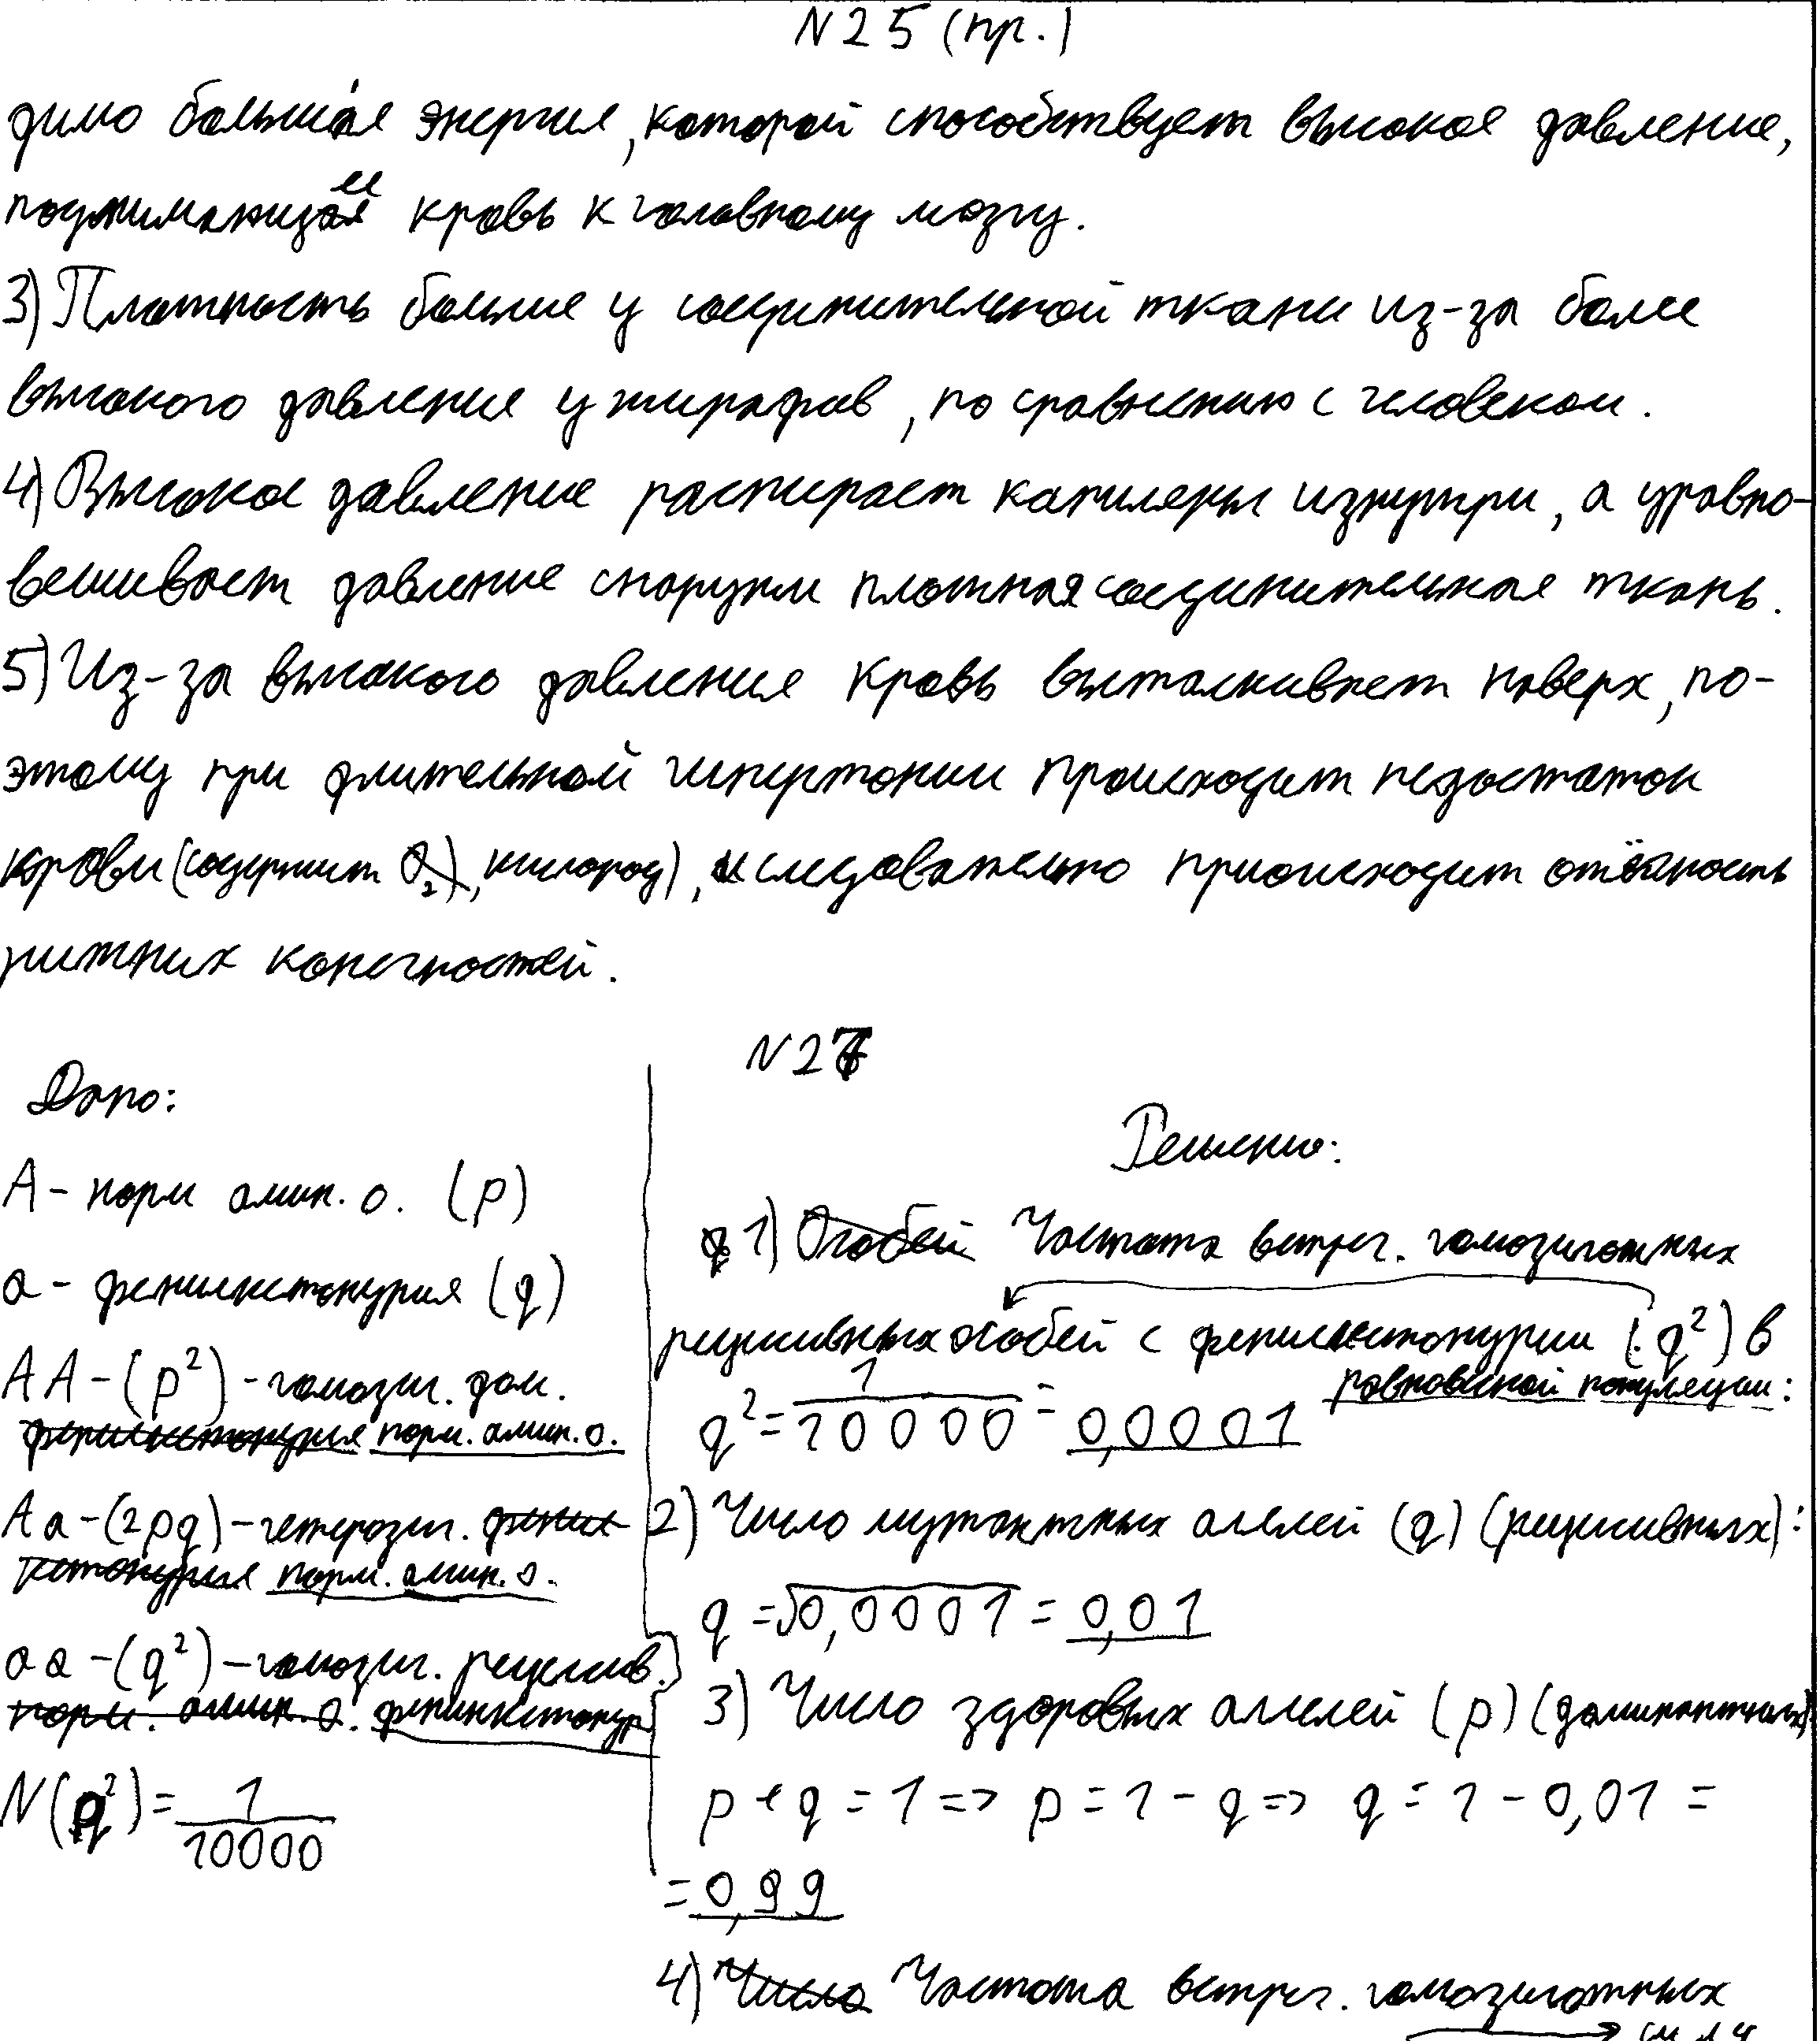 N25 (пр.)
димо большая энергия, которой способствует высокое давление,
поднимающее кровь к головному мозгу.
3) Плотность больше у соединительной ткани из-за более
высокого давления у жирафов, по сравнению с человеком.
4) Высокое давление распирает капиляры изнутри, а уравно-
вешивает давление снаружи плотная соединительная ткань.
5) Из-за высокого давления кровь выталкивает наверх, по-
этому при длительной гипертонии происходит недостаток
крови (содержит кислород), следовательно приоисходит отёчность
нижних конечностей.
N27
Дано:
A - норм амин. о. (p)
a - фенилкетонурия (q)
AA - (p²) - гомозиг. дом.
норм. амин. о.
Aa - (2pq) - гетерозиг.
норм. амин. о.
aa - (q²) - гомозиг. рецессив.
фенинкетонур
N(q²) = 1/10000
Решение:
1) Частота встреч. гомозиготных
рецисивных особей с фенилкетонурии (q²) в
равновесной популяции:
q² = 1/10000 = 0,0001
2) Число мутантных алелей (q) (рецисивных):
q = √0,0001 = 0,01
3) Число здоровых аллелей (p) (доминантных)
p + q = 1 => p = 1 - q => q = 1 - 0,01 =
= 0,99
4) Частота встреч. гомозиготных